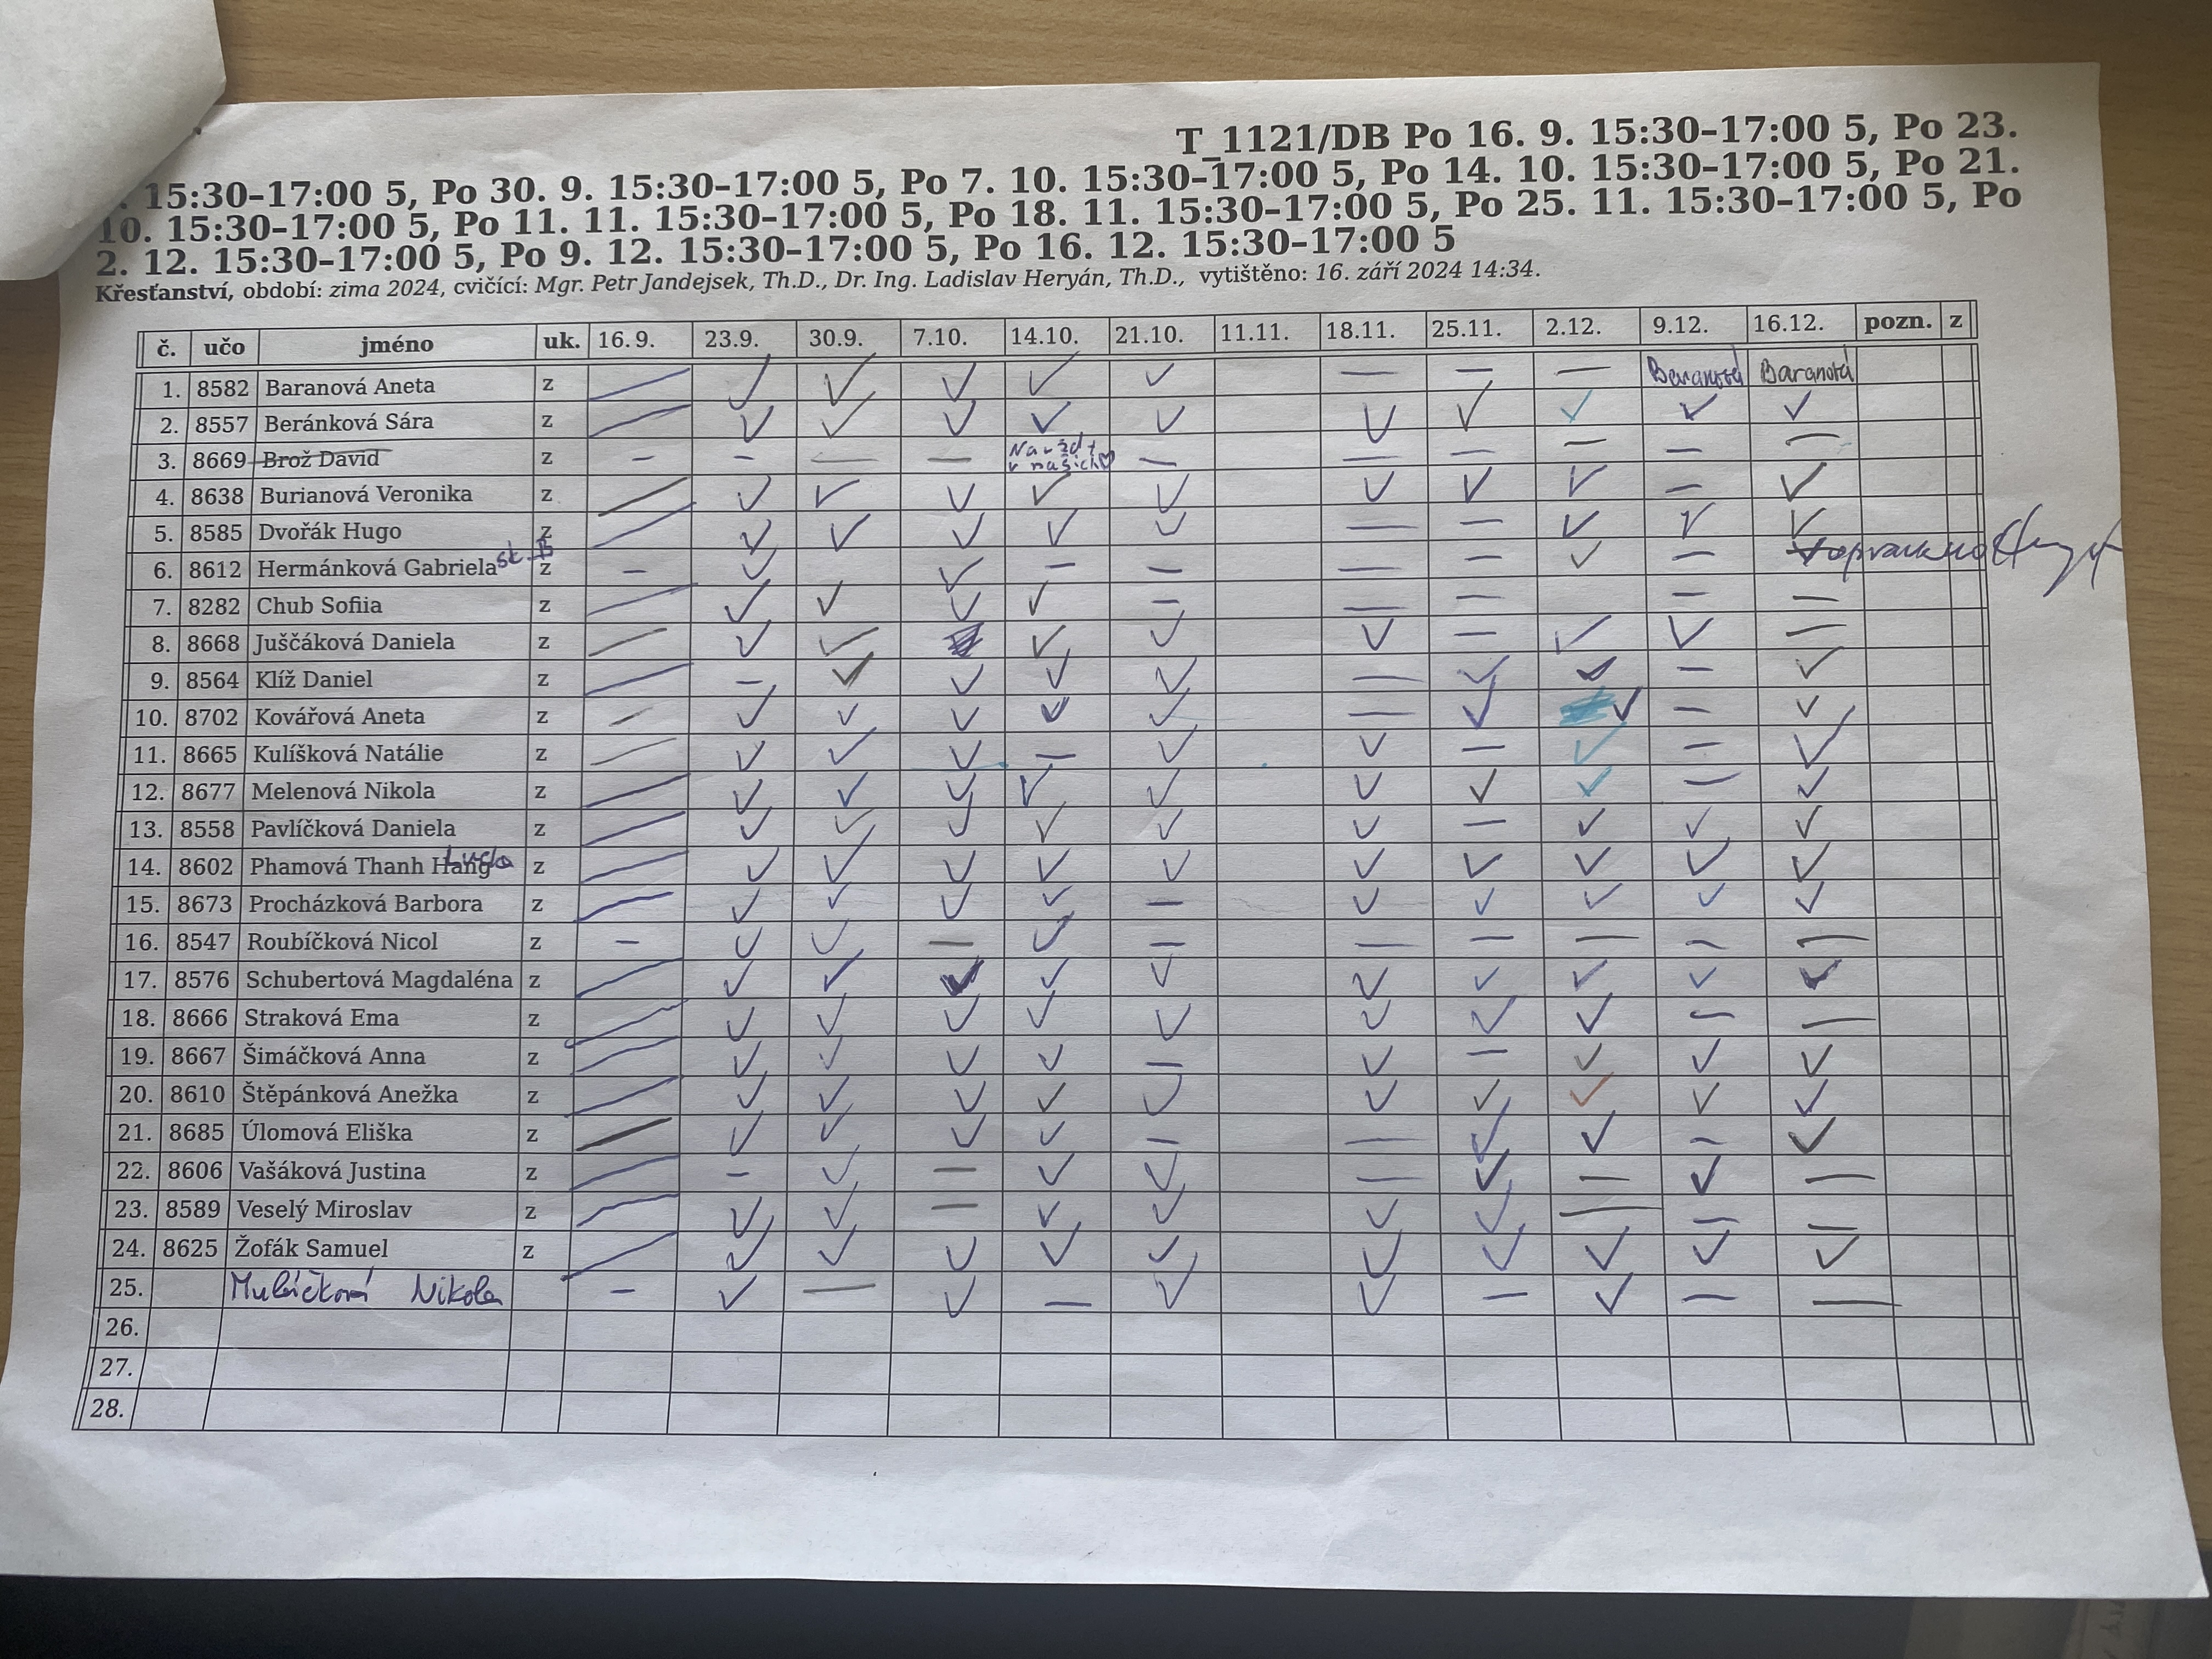 T_1121/DB Po 16. 9. 15:30–17:00 5, Po 23.
. 15:30–17:00 5, Po 30. 9. 15:30–17:00 5, Po 7. 10. 15:30–17:00 5, Po 14. 10. 15:30–17:00 5, Po 21.
10. 15:30–17:00 5, Po 11. 11. 15:30–17:00 5, Po 18. 11. 15:30–17:00 5, Po 25. 11. 15:30–17:00 5, Po
2. 12. 15:30–17:00 5, Po 9. 12. 15:30–17:00 5, Po 16. 12. 15:30–17:00 5
Křesťanství, období: zima 2024, cvičící: Mgr. Petr Jandejsek, Th.D., Dr. Ing. Ladislav Heryán, Th.D., vytištěno: 16. září 2024 14:34.
č. učo jméno uk. 16.9. 23.9. 30.9. 7.10. 14.10. 21.10. 11.11. 18.11. 25.11. 2.12. 9.12. 16.12. pozn. z
1. 8582 Baranová Aneta z – ✓ ✓ ✓ ✓ ✓ – – – Baranová Baranová
2. 8557 Beránková Sára z – ✓ ✓ ✓ ✓ ✓ ✓ ✓ ✓ ✓ ✓
3. 8669 Brož David z – – – – v našich ♡ – – – – – –
4. 8638 Burianová Veronika z – ✓ ✓ ✓ ✓ ✓ ✓ ✓ ✓ – ✓
5. 8585 Dvořák Hugo z – ✓ ✓ ✓ ✓ ✓ – – ✓ ✓ ✓
6. 8612 Hermánková Gabriela sk. B z – ✓ ✓ – – – – ✓ –
7. 8282 Chub Sofiia z – ✓ ✓ ✓ ✓ – – – – –
8. 8668 Juščáková Daniela z – ✓ ✓ ✓ ✓ ✓ – ✓ ✓ –
9. 8564 Klíž Daniel z – – ✓ ✓ ✓ ✓ – ✓ ✓ – ✓
10. 8702 Kovářová Aneta z – ✓ ✓ ✓ ✓ ✓ – ✓ ✓ – ✓
11. 8665 Kulíšková Natálie z – ✓ ✓ ✓ – ✓ ✓ – ✓ – ✓
12. 8677 Melenová Nikola z – ✓ ✓ ✓ ✓ ✓ ✓ ✓ ✓ – ✓
13. 8558 Pavlíčková Daniela z – ✓ ✓ ✓ ✓ ✓ ✓ – ✓ ✓ ✓
14. 8602 Phamová Thanh Hang z – ✓ ✓ ✓ ✓ ✓ ✓ ✓ ✓ ✓ ✓
15. 8673 Procházková Barbora z – ✓ ✓ ✓ ✓ – ✓ ✓ ✓ ✓ ✓
16. 8547 Roubíčková Nicol z – ✓ ✓ – ✓ – – – – – –
17. 8576 Schubertová Magdaléna z – ✓ ✓ ✓ ✓ ✓ ✓ ✓ ✓ ✓ ✓
18. 8666 Straková Ema z – ✓ ✓ ✓ ✓ ✓ ✓ ✓ ✓ – –
19. 8667 Šimáčková Anna z – ✓ ✓ ✓ ✓ – ✓ – ✓ ✓ ✓
20. 8610 Štěpánková Anežka z – ✓ ✓ ✓ ✓ ✓ ✓ ✓ ✓ ✓ ✓
21. 8685 Úlomová Eliška z – ✓ ✓ ✓ ✓ – – ✓ ✓ – ✓
22. 8606 Vašáková Justina z – – ✓ – ✓ ✓ – ✓ – ✓ –
23. 8589 Veselý Miroslav z – ✓ ✓ – ✓ ✓ ✓ ✓ – – –
24. 8625 Žofák Samuel z – ✓ ✓ ✓ ✓ ✓ ✓ ✓ ✓ ✓ ✓
25. Nikola – ✓ – ✓ – ✓ ✓ – ✓ – –
26.
27.
28.